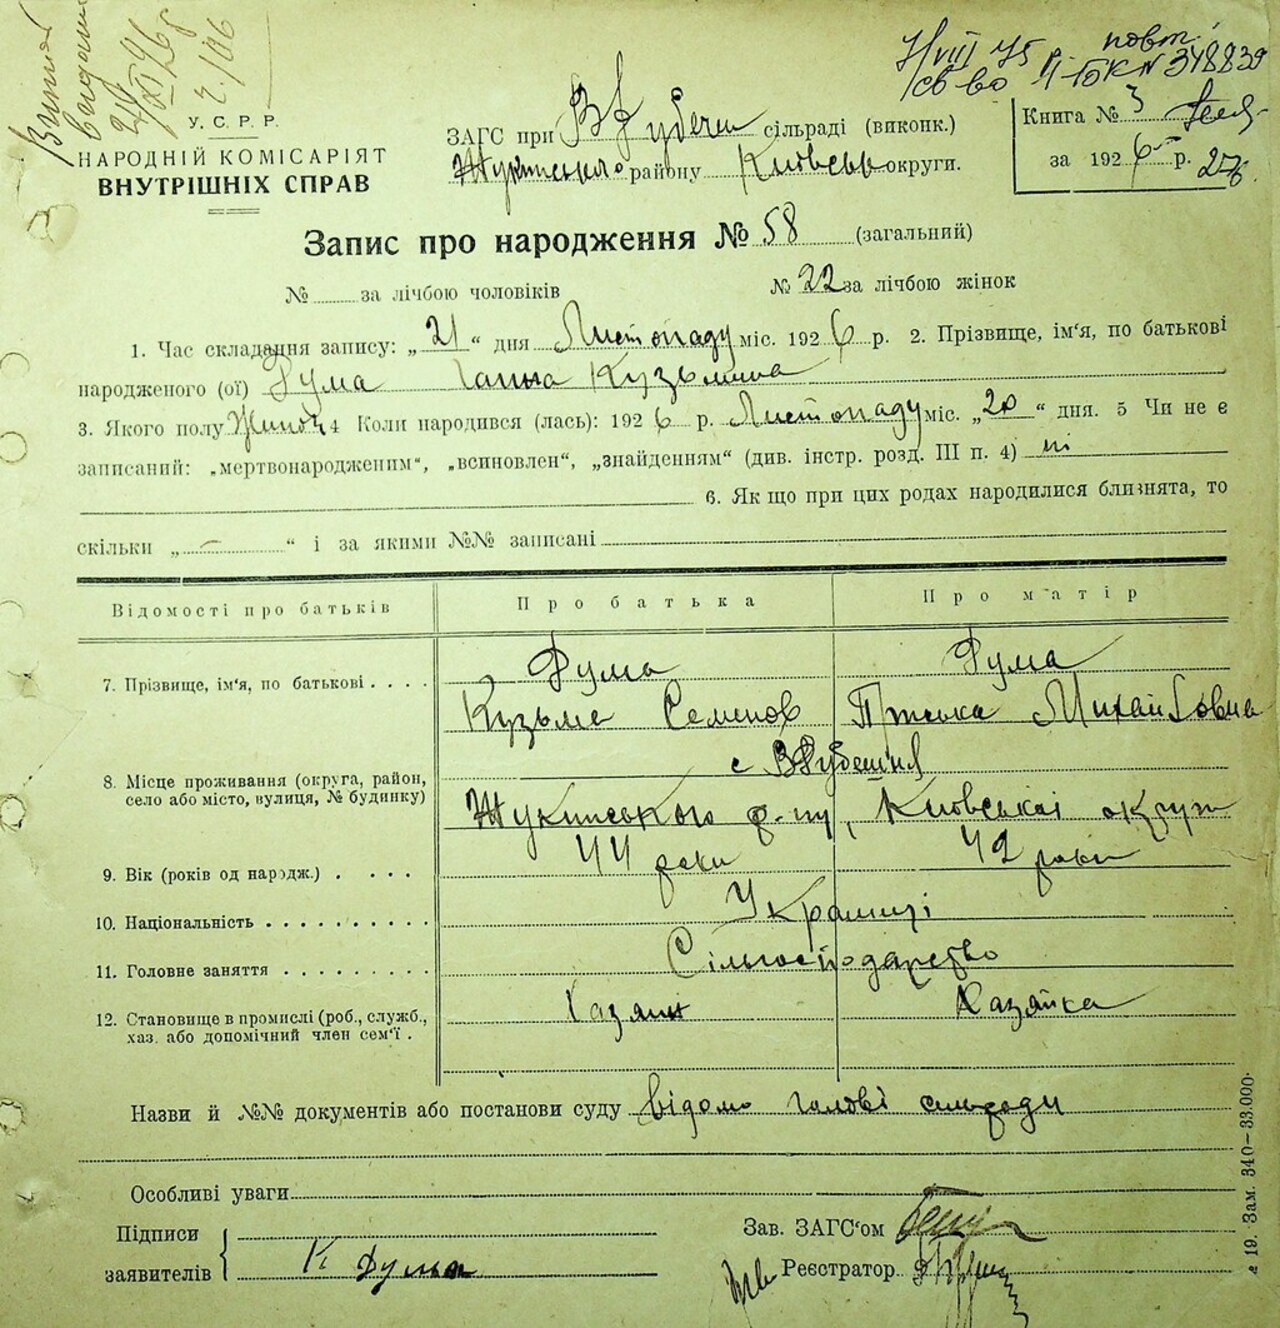 У. С. Р. Р.
НАРОДНІЙ КОМІСАРІЯТ
ВНУТРІШНІХ СПРАВ
7/VIII 75 р. повт.
св во № 348839
ЗАГС при сільраді (виконк.)
району округи.
Книга № 3
за 1926 р.
Запис про народження № 58 (загальний)
№ за лічбою чоловіків № 22 за лічбою жінок
1. Час складання запису: „21“ дня Листопаду міс. 1926 р. 2. Прізвище, ім‘я, по батькові
народженого (ої) Дума Ганна Кузьмина
3. Якого полу Жиноч 4 Коли народився (лась): 1926 р. Листопаду міс. „20“ дня. 5 Чи не є
записаний: „мертвонародженим“, „всиновлен“, „знайденням“ (див. інстр. розд. III п. 4) ні
6. Як що при цих родах народилися близнята, то
скільки „ – “ і за якими №№ записані
Відомості про батьків Про батька Про матір
7. Прізвище, ім‘я, по батькові . . . . Дума Дума
Кузьма Семенов Михайловна
8. Місце проживання (округа, район,
село або місто, вулиця, № будинку)
Жукинського р-ну, Київської округи
9. Вік (років од народж.) . . . . 44 роки 42 роки
10. Національність . . . . . . . . . . Українці
11. Головне заняття . . . . . . . . . Сільгосподарство
12. Становище в промислі (роб., служб.,
хаз. або допомічний член сем‘ї . Хазяин Хазяйка
Назви й №№ документів або постанови суду Відомо голові сильради
Особливі уваги
Підписи
заявителів К Дума
Зав. ЗАГС‘ом
Реєстратор
19. Зам. 340–33.000.